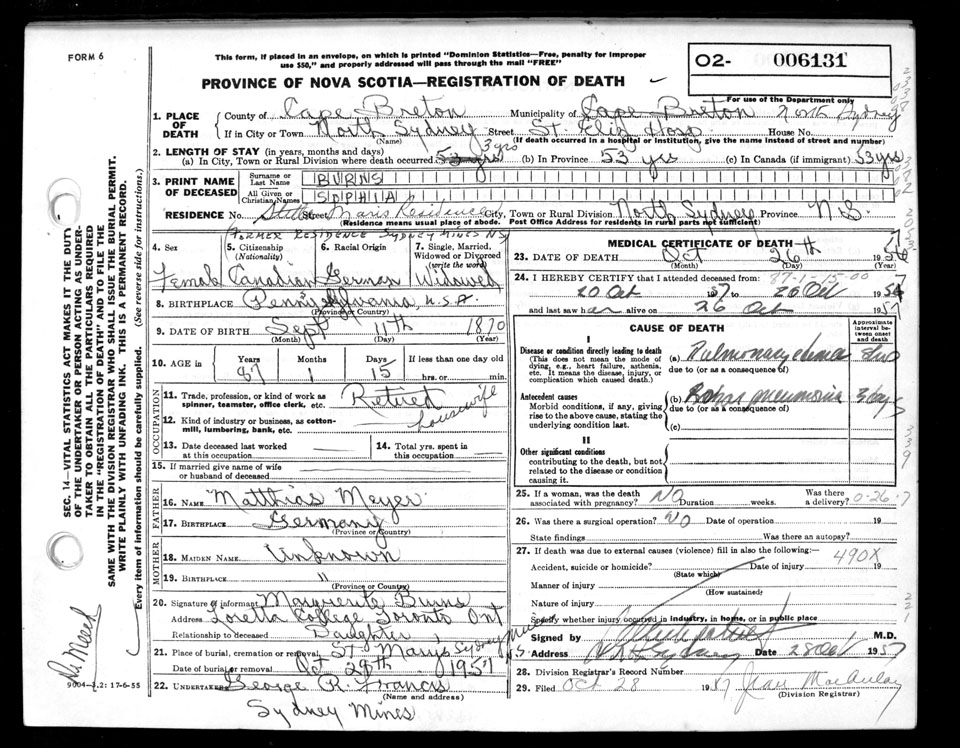 FORM 6
This form, if placed in an envelope, on which is printed "Dominion Statistics—Free, penalty for improper
use $50," and properly addressed will pass through the mail "FREE"
PROVINCE OF NOVA SCOTIA—REGISTRATION OF DEATH
O2- 006131
For use of the Department only
1. PLACE OF DEATH
County of Cape Breton Municipality of Cape Breton North Sydney
If in City or Town North Sydney Street St. Eliz Hosp House No.
(Name) (If death occurred in a hospital or institution, give the name instead of street and number)
2. LENGTH OF STAY (in years, months and days)
3 yrs
(a) In City, Town or Rural Division where death occurred 53 yrs (b) In Province 53 yrs (c) In Canada (if immigrant) 53 yrs
3. PRINT NAME OF DECEASED
Surname or Last Name BURNS
All Given or Christian Names SOPHIA
RESIDENCE No. Stella Street Maris Residence City, Town or Rural Division North Sydney Province N.S.
(Residence means usual place of abode. Post Office Address for residents in rural parts not sufficient)
FORMER RESIDENCE SYDNEY MINES NS
4. Sex 5. Citizenship (Nationality) 6. Racial Origin 7. Single, Married, Widowed or Divorced (write the word)
Female Canadian German Widowed
8. BIRTHPLACE Pennsylvania, U.S.A.
(Province or Country)
9. DATE OF BIRTH Sept 11th 1870
(Month) (Day) (Year)
10. AGE in Years Months Days If less than one day old
87 1 15 hrs. or min.
OCCUPATION
11. Trade, profession, or kind of work as spinner, teamster, office clerk, etc. Retired
12. Kind of industry or business, as cotton-mill, lumbering, bank, etc. housewife
13. Date deceased last worked at this occupation
14. Total yrs. spent in this occupation
15. If married give name of wife or husband of deceased
FATHER
16. NAME Matthias Meyer
17. BIRTHPLACE Germany
(Province or Country)
MOTHER
18. MAIDEN NAME Unknown
19. BIRTHPLACE "
(Province or Country)
20. Signature of informant Marguerite Burns
Address Loretta College Toronto Ont
Relationship to deceased Daughter
21. Place of burial, cremation or removal St. Marys Sydney Mines N.S.
Date of burial or removal Oct 29th 1957
22. UNDERTAKER George R. Francis
(Name and address)
Sydney Mines
MEDICAL CERTIFICATE OF DEATH
23. DATE OF DEATH Oct 26th 1957
(Month) (Day) (Year)
24. I HEREBY CERTIFY that I attended deceased from:
20 Oct 1957 to 26 Oct 1957
and last saw her alive on 26 Oct 1957
CAUSE OF DEATH
Approximate interval between onset and death
I
Disease or condition directly leading to death
(This does not mean the mode of dying, e.g., heart failure, asthenia, etc. It means the disease, injury, or complication which caused death.)
(a) Pulmonary edema
due to (or as a consequence of)
Antecedent causes
Morbid conditions, if any, giving rise to the above cause, stating the underlying condition last.
(b) Lobar pneumonia 3 days
due to (or as a consequence of)
(c)
II
Other significant conditions
contributing to the death, but not related to the disease or condition causing it.
25. If a woman, was the death associated with pregnancy? NO Duration weeks. Was there a delivery?
26. Was there a surgical operation? NO Date of operation 19
State findings Was there an autopsy?
27. If death was due to external causes (violence) fill in also the following: 490X
Accident, suicide or homicide? Date of injury 19
(State which)
Manner of injury
(How sustained)
Nature of injury
Specify whether injury occurred in industry, in home, or in public place
Signed by M.D.
Address N. Sydney Date 28 Oct 1957
28. Division Registrar's Record Number
29. Filed Oct 28 1957 Jean MacAulay
(Division Registrar)
SEC. 14—VITAL STATISTICS ACT MAKES IT THE DUTY
OF THE UNDERTAKER OR PERSON ACTING AS UNDER-
TAKER TO OBTAIN ALL THE PARTICULARS REQUIRED
IN THE "REGISTRATION OF DEATH" AND TO FILE THE
SAME WITH THE DIVISION REGISTRAR WHO SHALL ISSUE THE BURIAL PERMIT.
WRITE PLAINLY WITH UNFADING INK. THIS IS A PERMANENT RECORD.
Every item of information should be carefully supplied. (See reverse side for instructions.)
9004—J.2: 17-6-55